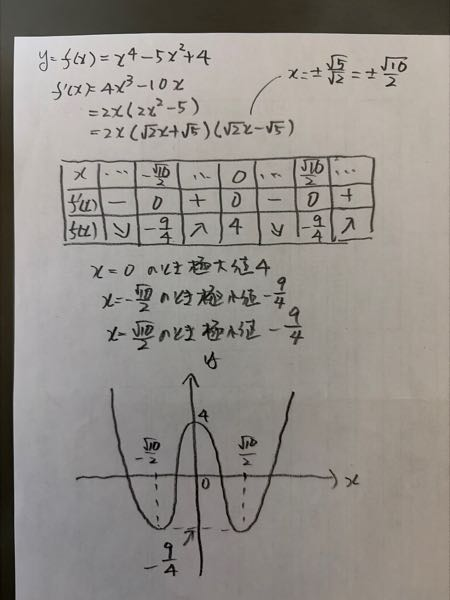 y=f(x)=x⁴-5x²+4
f'(x)=4x³-10x
=2x(2x²-5)
=2x(√2x+√5)(√2x-√5)
x=±√5/√2=±√10/2
x … -√10/2 … 0 … √10/2 …
f'(x) - 0 + 0 - 0 +
f(x) ↘ -9/4 ↗ 4 ↘ -9/4 ↗
x=0 のとき極大値4
x=-√10/2 のとき極小値-9/4
x=√10/2 のとき極小値-9/4
y
4
-√10/2
√10/2
0
x
-9/4